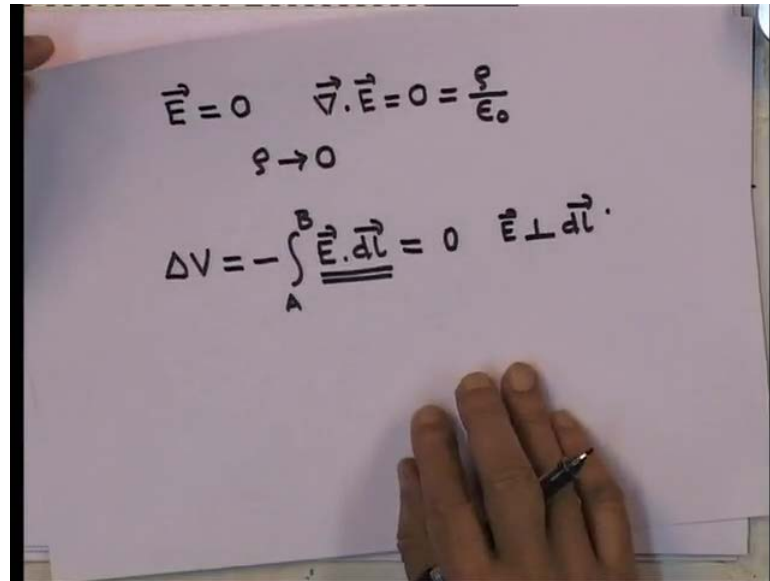 E⃗ = 0 ∇⃗.E⃗ = 0 = ρ/ε₀
ρ → 0
ΔV = -∫_A^B E⃗.dl⃗ = 0 E⃗ ⊥ dl⃗.